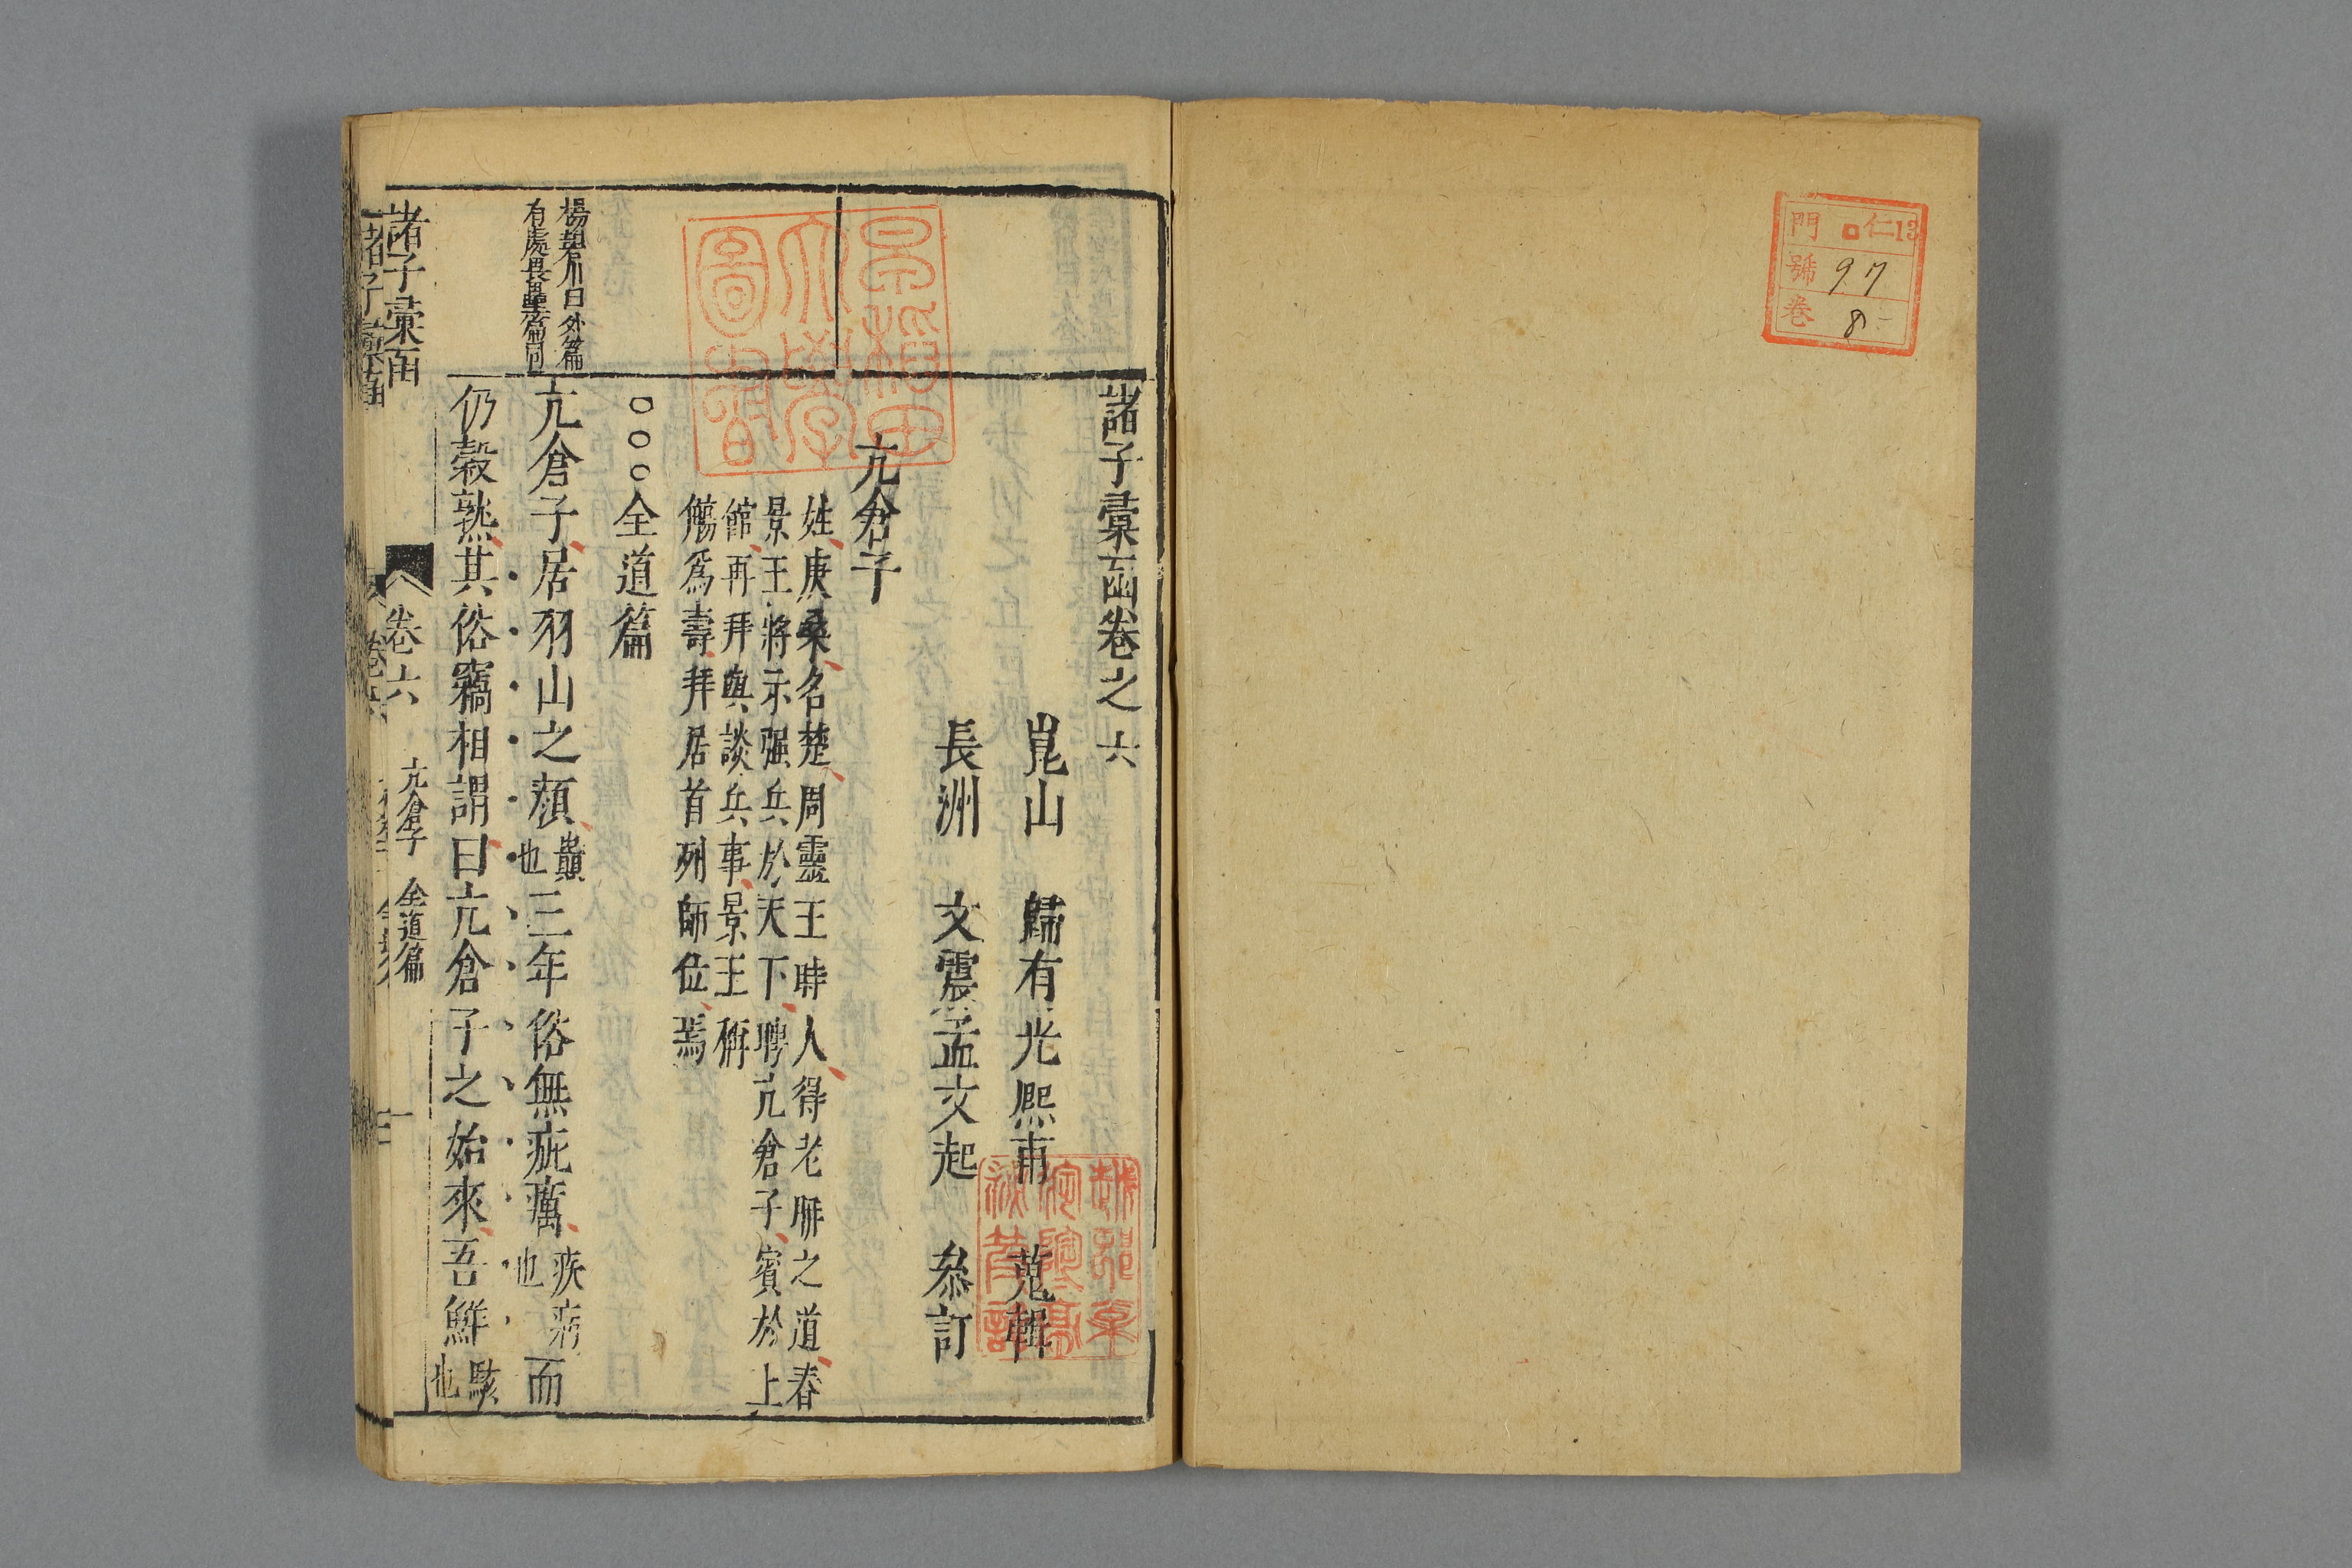 門 仁13
號 97
卷 8
諸子彙函卷之六
崑山 歸有光熙甫 蒐輯
長洲 文震孟文起 叅訂
亢倉子
姓庚桑名楚周靈王時人得老聃之道春
景王將示强兵於天下聘亢倉子賓於上
館再拜與談兵事景王稱
觴爲壽拜居首列師位焉
○○○全道篇
楊朝川曰外篇
有處畏壘篇同
亢倉子居羽山之顏巔也三年俗無疵癘疾病也而
仍穀熟其俗竊相謂曰亢倉子之始來吾鮮駭也
諸子彙函 卷六 亢倉子 全道篇 一
早稻田大學圖書